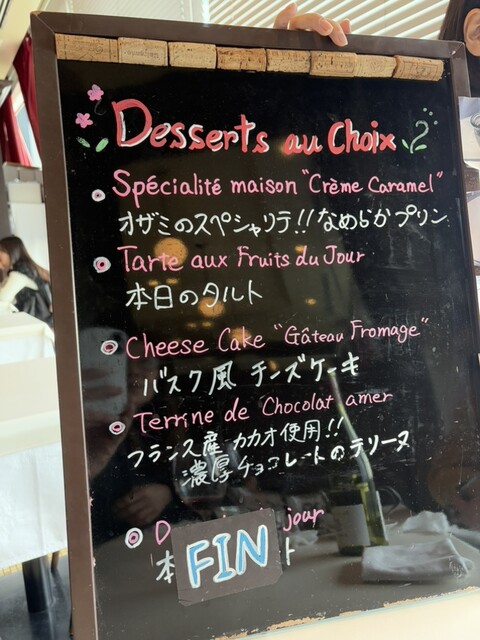 Desserts au Choix
Spécialité maison "Crème Caramel"
オザミのスペシャリテ!! なめらかプリン
Tarte aux Fruits du Jour
本日のタルト
Cheese Cake "Gâteau Fromage"
バスク風 チーズケーキ
Terrine de Chocolat amer
フランス産 カカオ使用!!
濃厚チョコレートのテリーヌ
D jour
本 ト
FIN